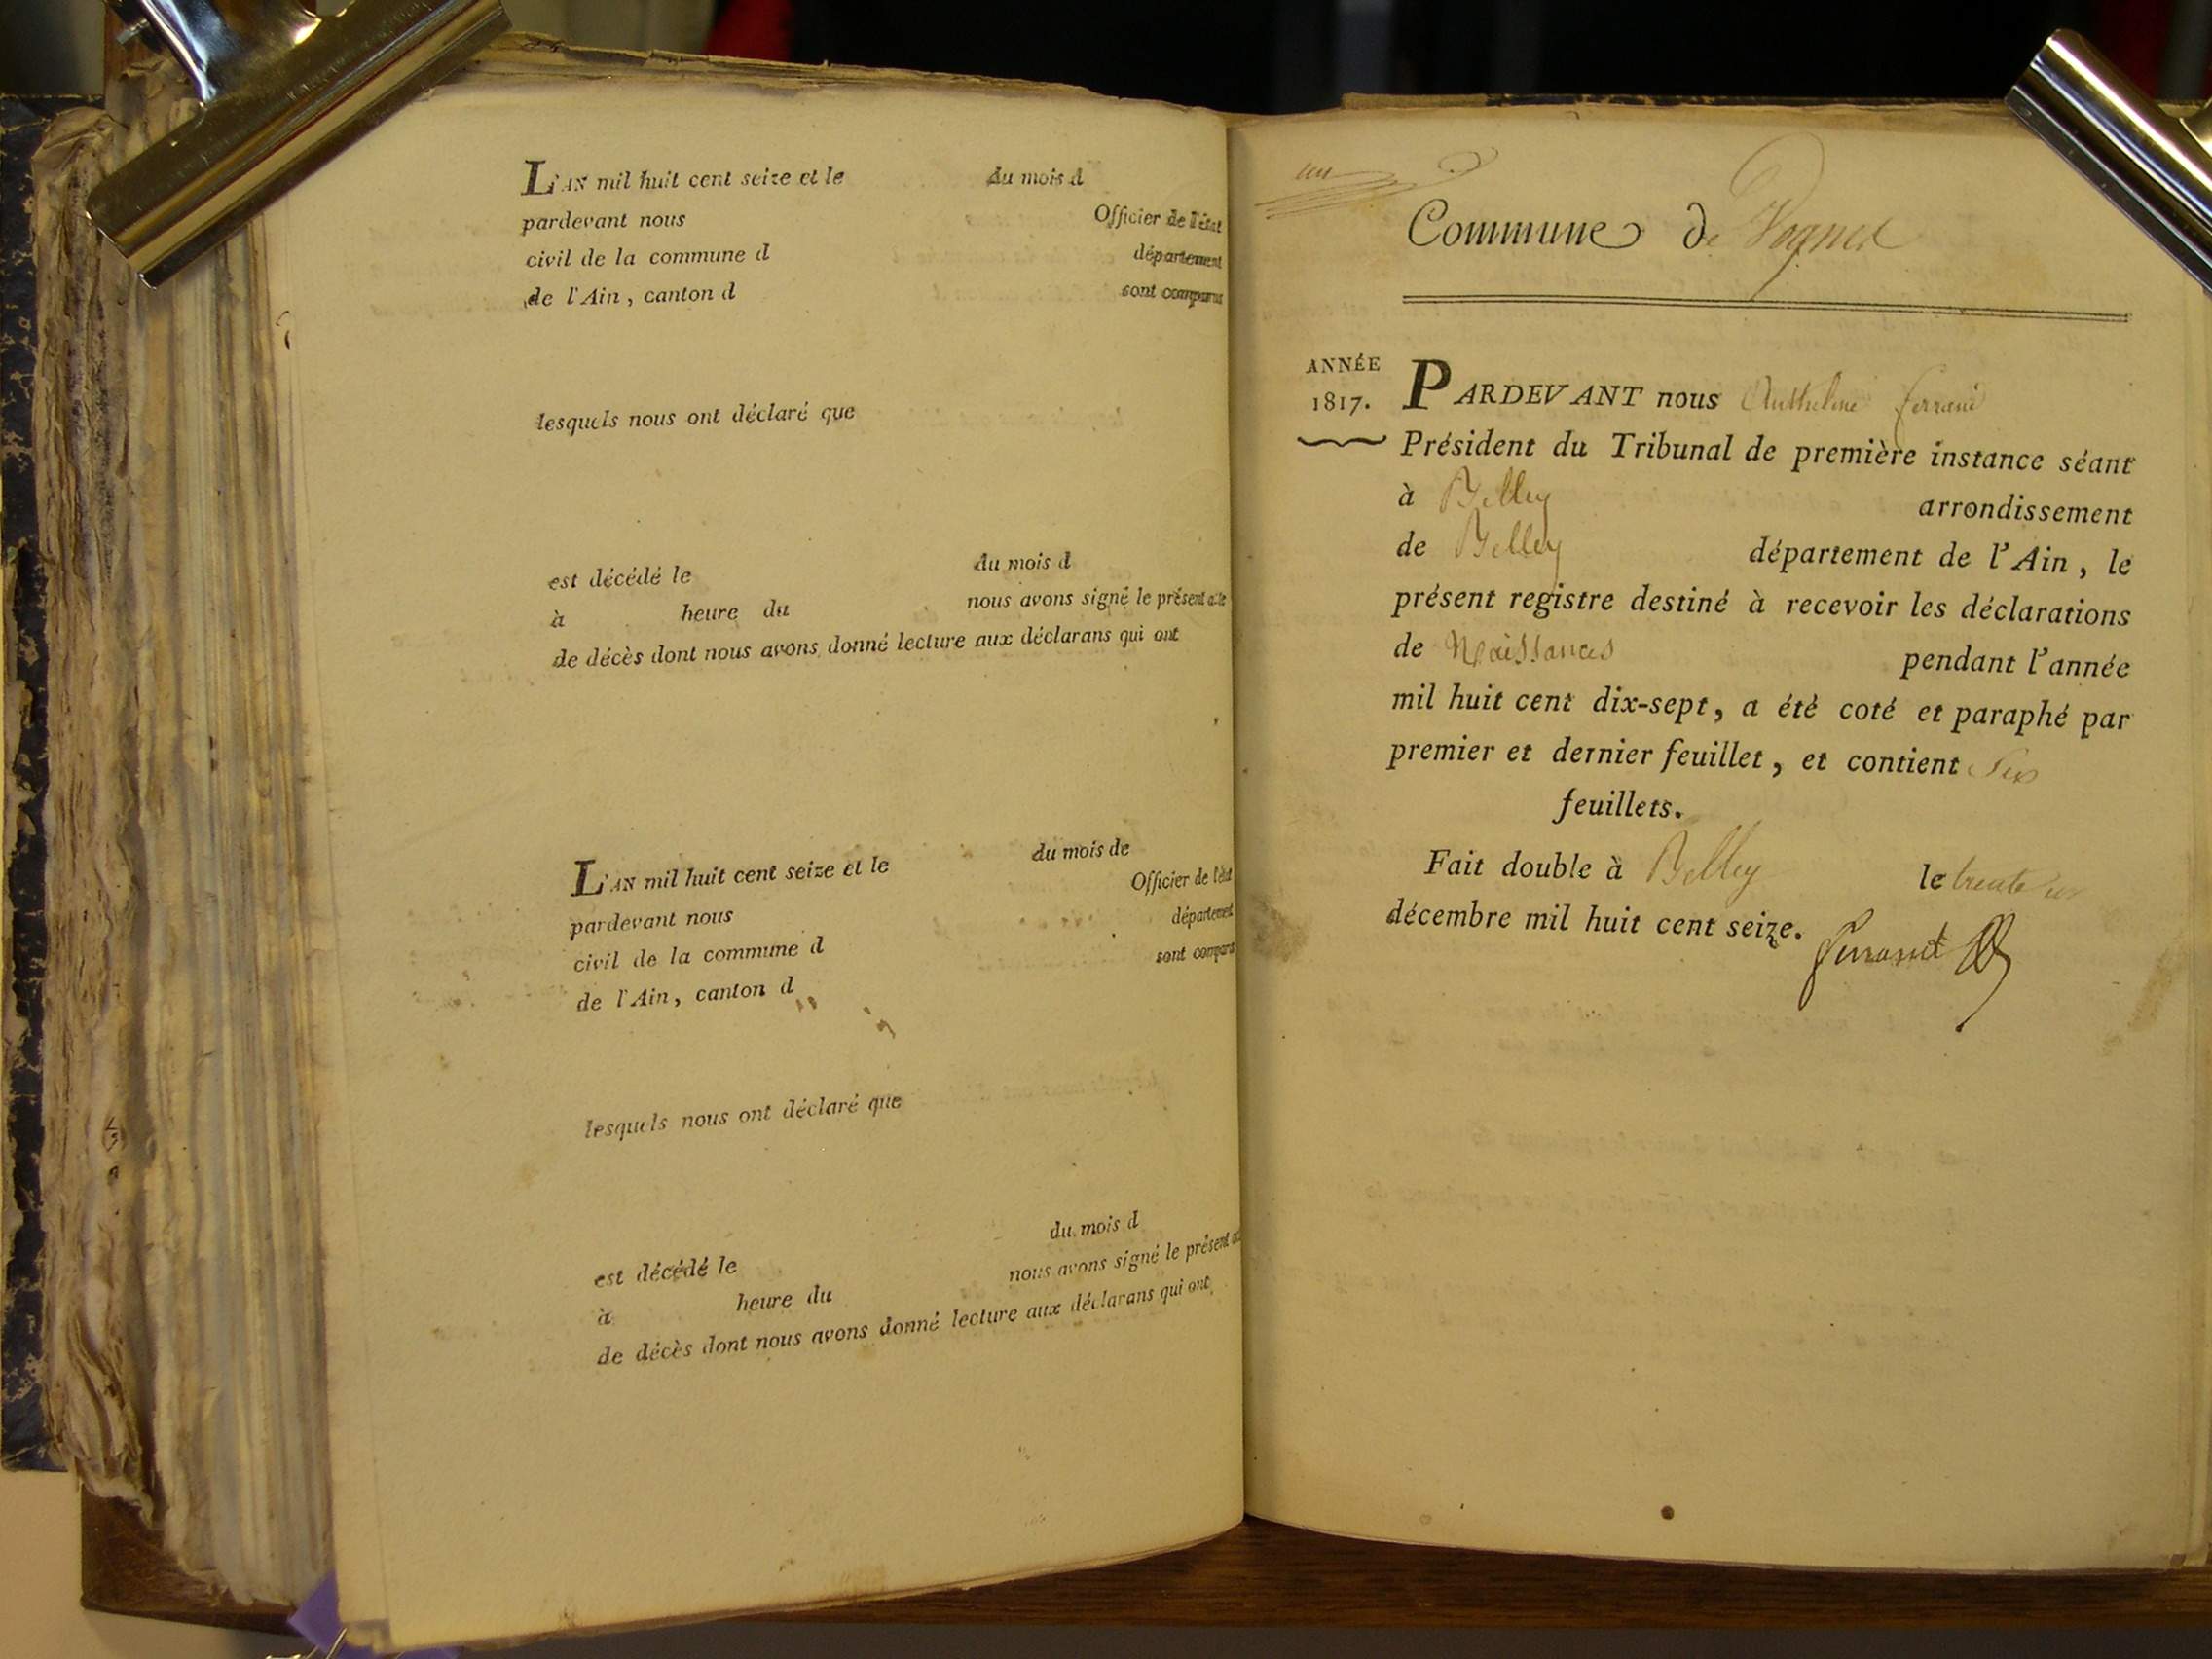 L'AN mil huit cent seize et le du mois d
pardevant nous Officier de l'état
civil de la commune d département
de l'Ain, canton d sont comparus
lesquels nous ont déclaré que
est décédé le du mois d
à heure du nous avons signé le présent acte
de décès dont nous avons donné lecture aux déclarans qui ont
L'AN mil huit cent seize et le du mois de
pardevant nous Officier de l'état
civil de la commune d département
de l'Ain, canton d sont comparus
lesquels nous ont déclaré que
est décédé le du mois d
à heure du nous avons signé le présent
de décès dont nous avons donné lecture aux déclarans qui ont
un
Commune de
ANNÉE
1817.
PARDEVANT nous Anthelme ferrand
Président du Tribunal de première instance séant
à Belley arrondissement
de Belley département de l'Ain, le
présent registre destiné à recevoir les déclarations
de Naissances pendant l'année
mil huit cent dix-sept, a été coté et paraphé par
premier et dernier feuillet, et contient six
feuillets.
Fait double à Belley le trente un
décembre mil huit cent seize.
ferrand